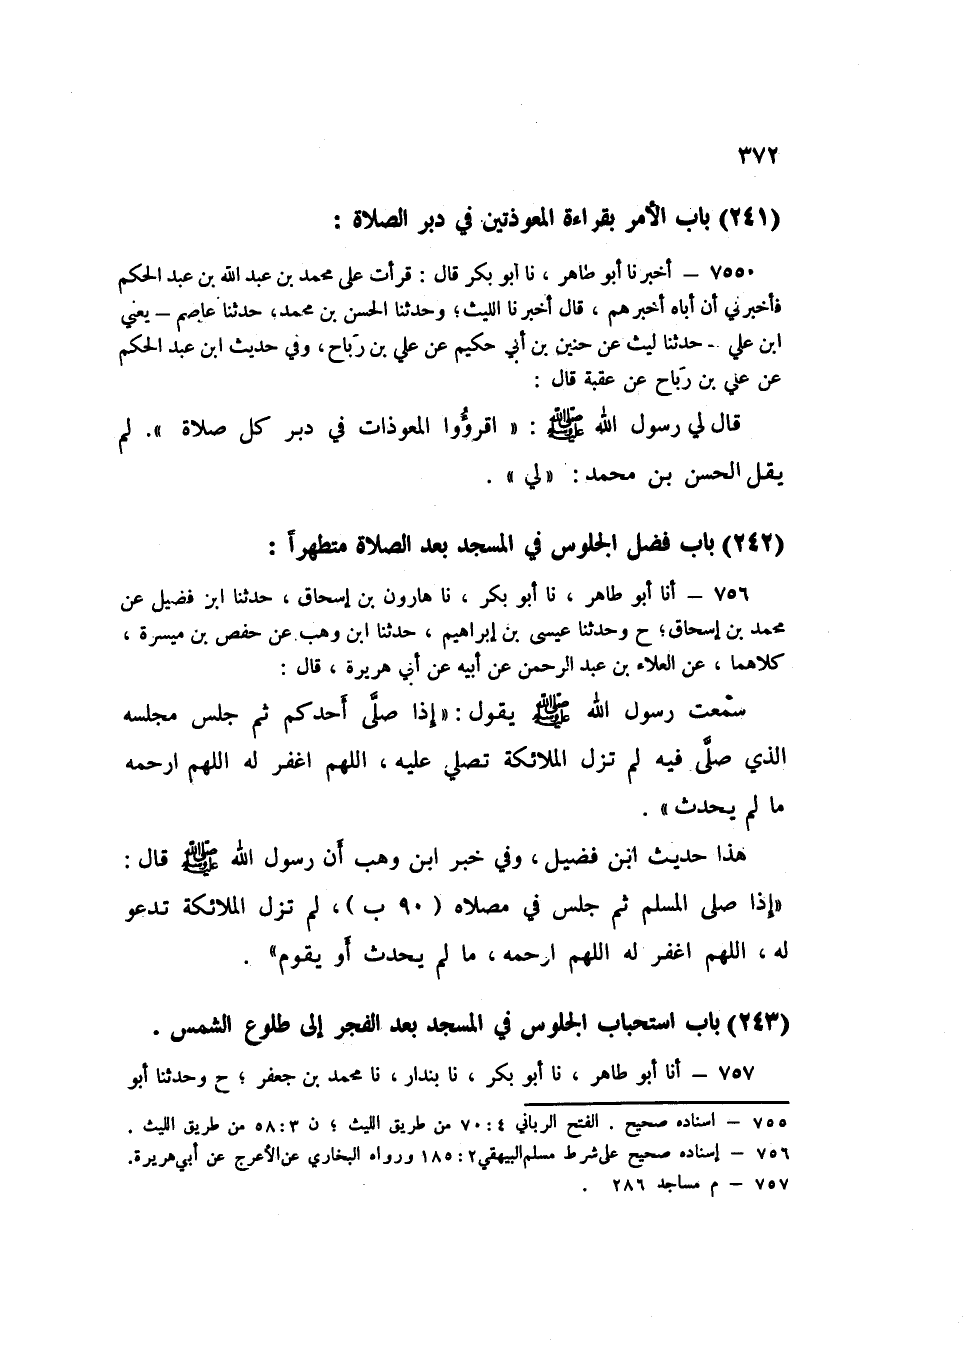 ٣٧٢
(٢٤١) باب الأمر بقراءة المعوذتين في دبر الصلاة :
٧٥٥٠ – أخبرنا أبو طاهر ، نا أبو بكر قال : قرأت على محمد بن عبد الله بن عبد الحكم
فأخبرني أن أباه أخبرهم ، قال أخبرنا الليث؛ وحدثنا الحسن بن محمد، حدثنا عاصم – يعني
ابن علي – حدثنا ليث عن حنين بن أبي حكيم عن علي بن رَباح، وفي حديث ابن عبد الحكم
عن علي بن رَباح عن عقبة قال :
قال لي رسول الله ﷺ : « اقرؤُوا المعوذات في دبر كل صلاة ». لم
يقل الحسن بن محمد : «لي» .
(٢٤٢) باب فضل الجلوس في المسجد بعد الصلاة متطهراً :
٧٥٦ – أنا أبو طاهر ، نا أبو بكر ، نا هارون بن إسحاق ، حدثنا ابن فضيل عن
محمد بن إسحاق؛ ح وحدثنا عيسى بن إبراهيم ، حدثنا ابن وهب عن حفص بن ميسرة ،
كلاهما ، عن العلاء بن عبد الرحمن عن أبيه عن أبي هريرة ، قال :
سمعت رسول الله ﷺ يقول : «إذا صلَّى أَحدكم ثم جلس مجلسه
الذي صلَّى فيه لم تزل الملائكة تصلي عليه، اللهم اغفر له اللهم ارحمه
ما لم يحدث» .
هذا حديث ابن فضيل، وفي خبر ابن وهب أَن رسول الله ﷺ قال :
«إذا صلى المسلم ثم جلس في مصلاه ( ٩٠ ب )، لم تزل الملائكة تدعو
له ، اللهم اغفر له اللهم ارحمه، ما لم يحدث أَو يقوم» .
(٢٤٣) باب استحباب الجلوس في المسجد بعد الفجر إلى طلوع الشمس .
٧٥٧ – أنا أبو طاهر ، نا أبو بكر ، نا بندار ، نا محمد بن جعفر ؛ ح وحدثنا أبو
٧٥٥ – اسناده صحيح . الفتح الرباني ٤ : ٧٠ من طريق الليث ؛ ن ٣ : ٥٨ من طريق الليث .
٧٥٦ – إسناده صحيح على شرط مسلم البيهقي ٢ : ١٨٥ ورواه البخاري عن الأعرج عن أبي هريرة.
٧٥٧ – م مساجد ٢٨٦ .